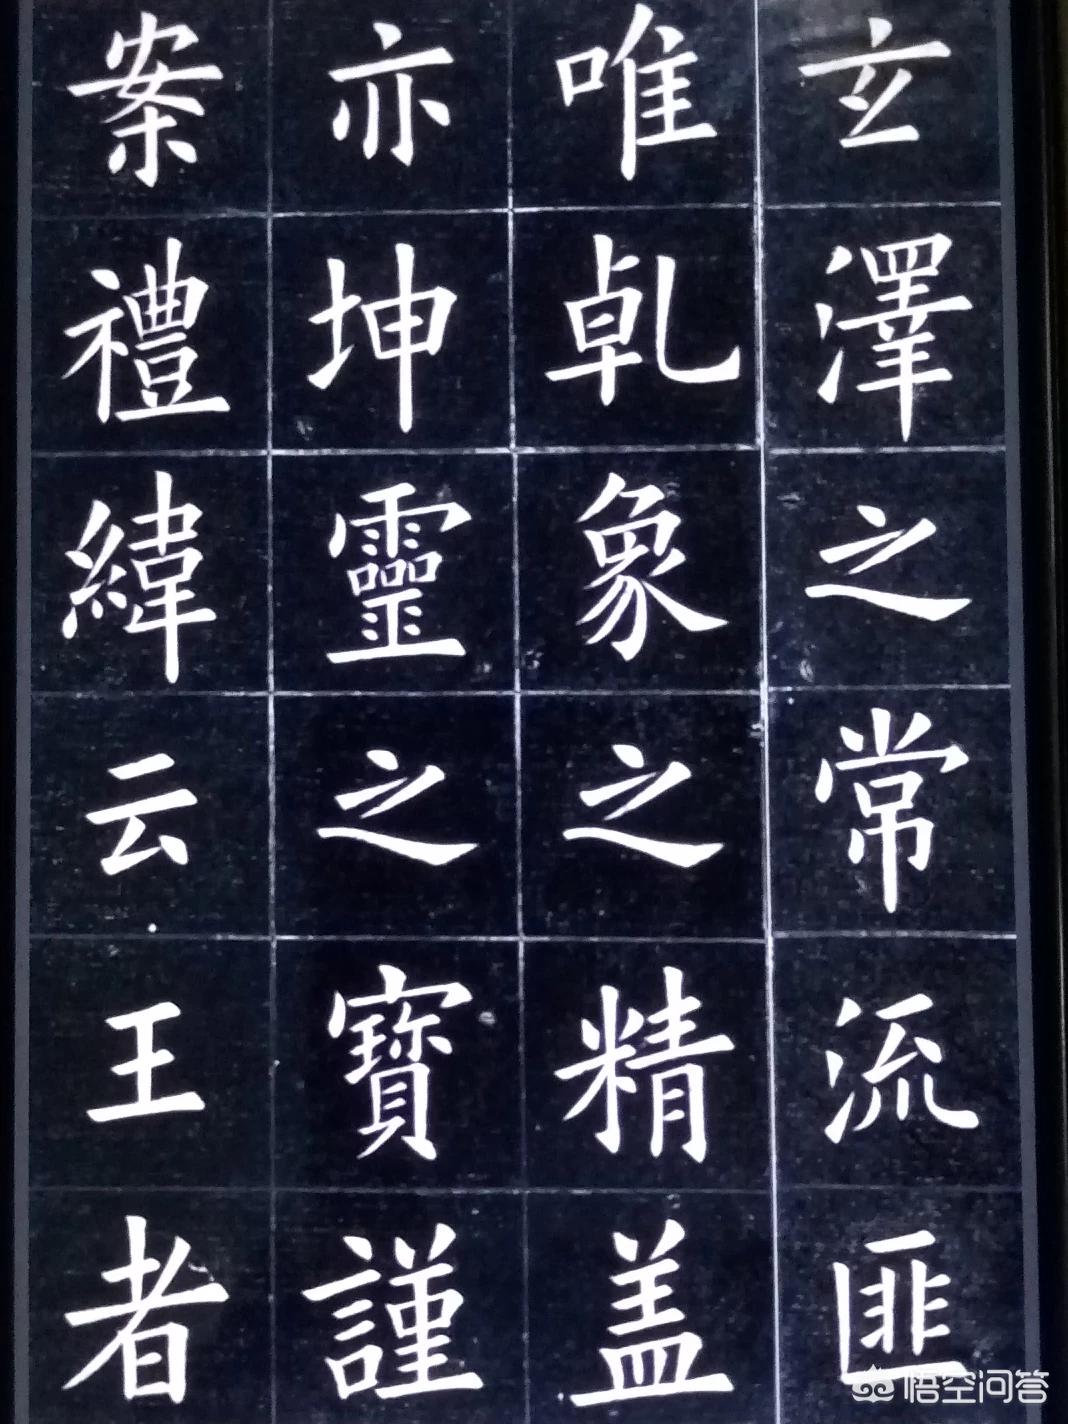 玄澤之常流匪
唯乹象之精盖
亦坤靈之寶謹
案禮緯云王者
悟空问答